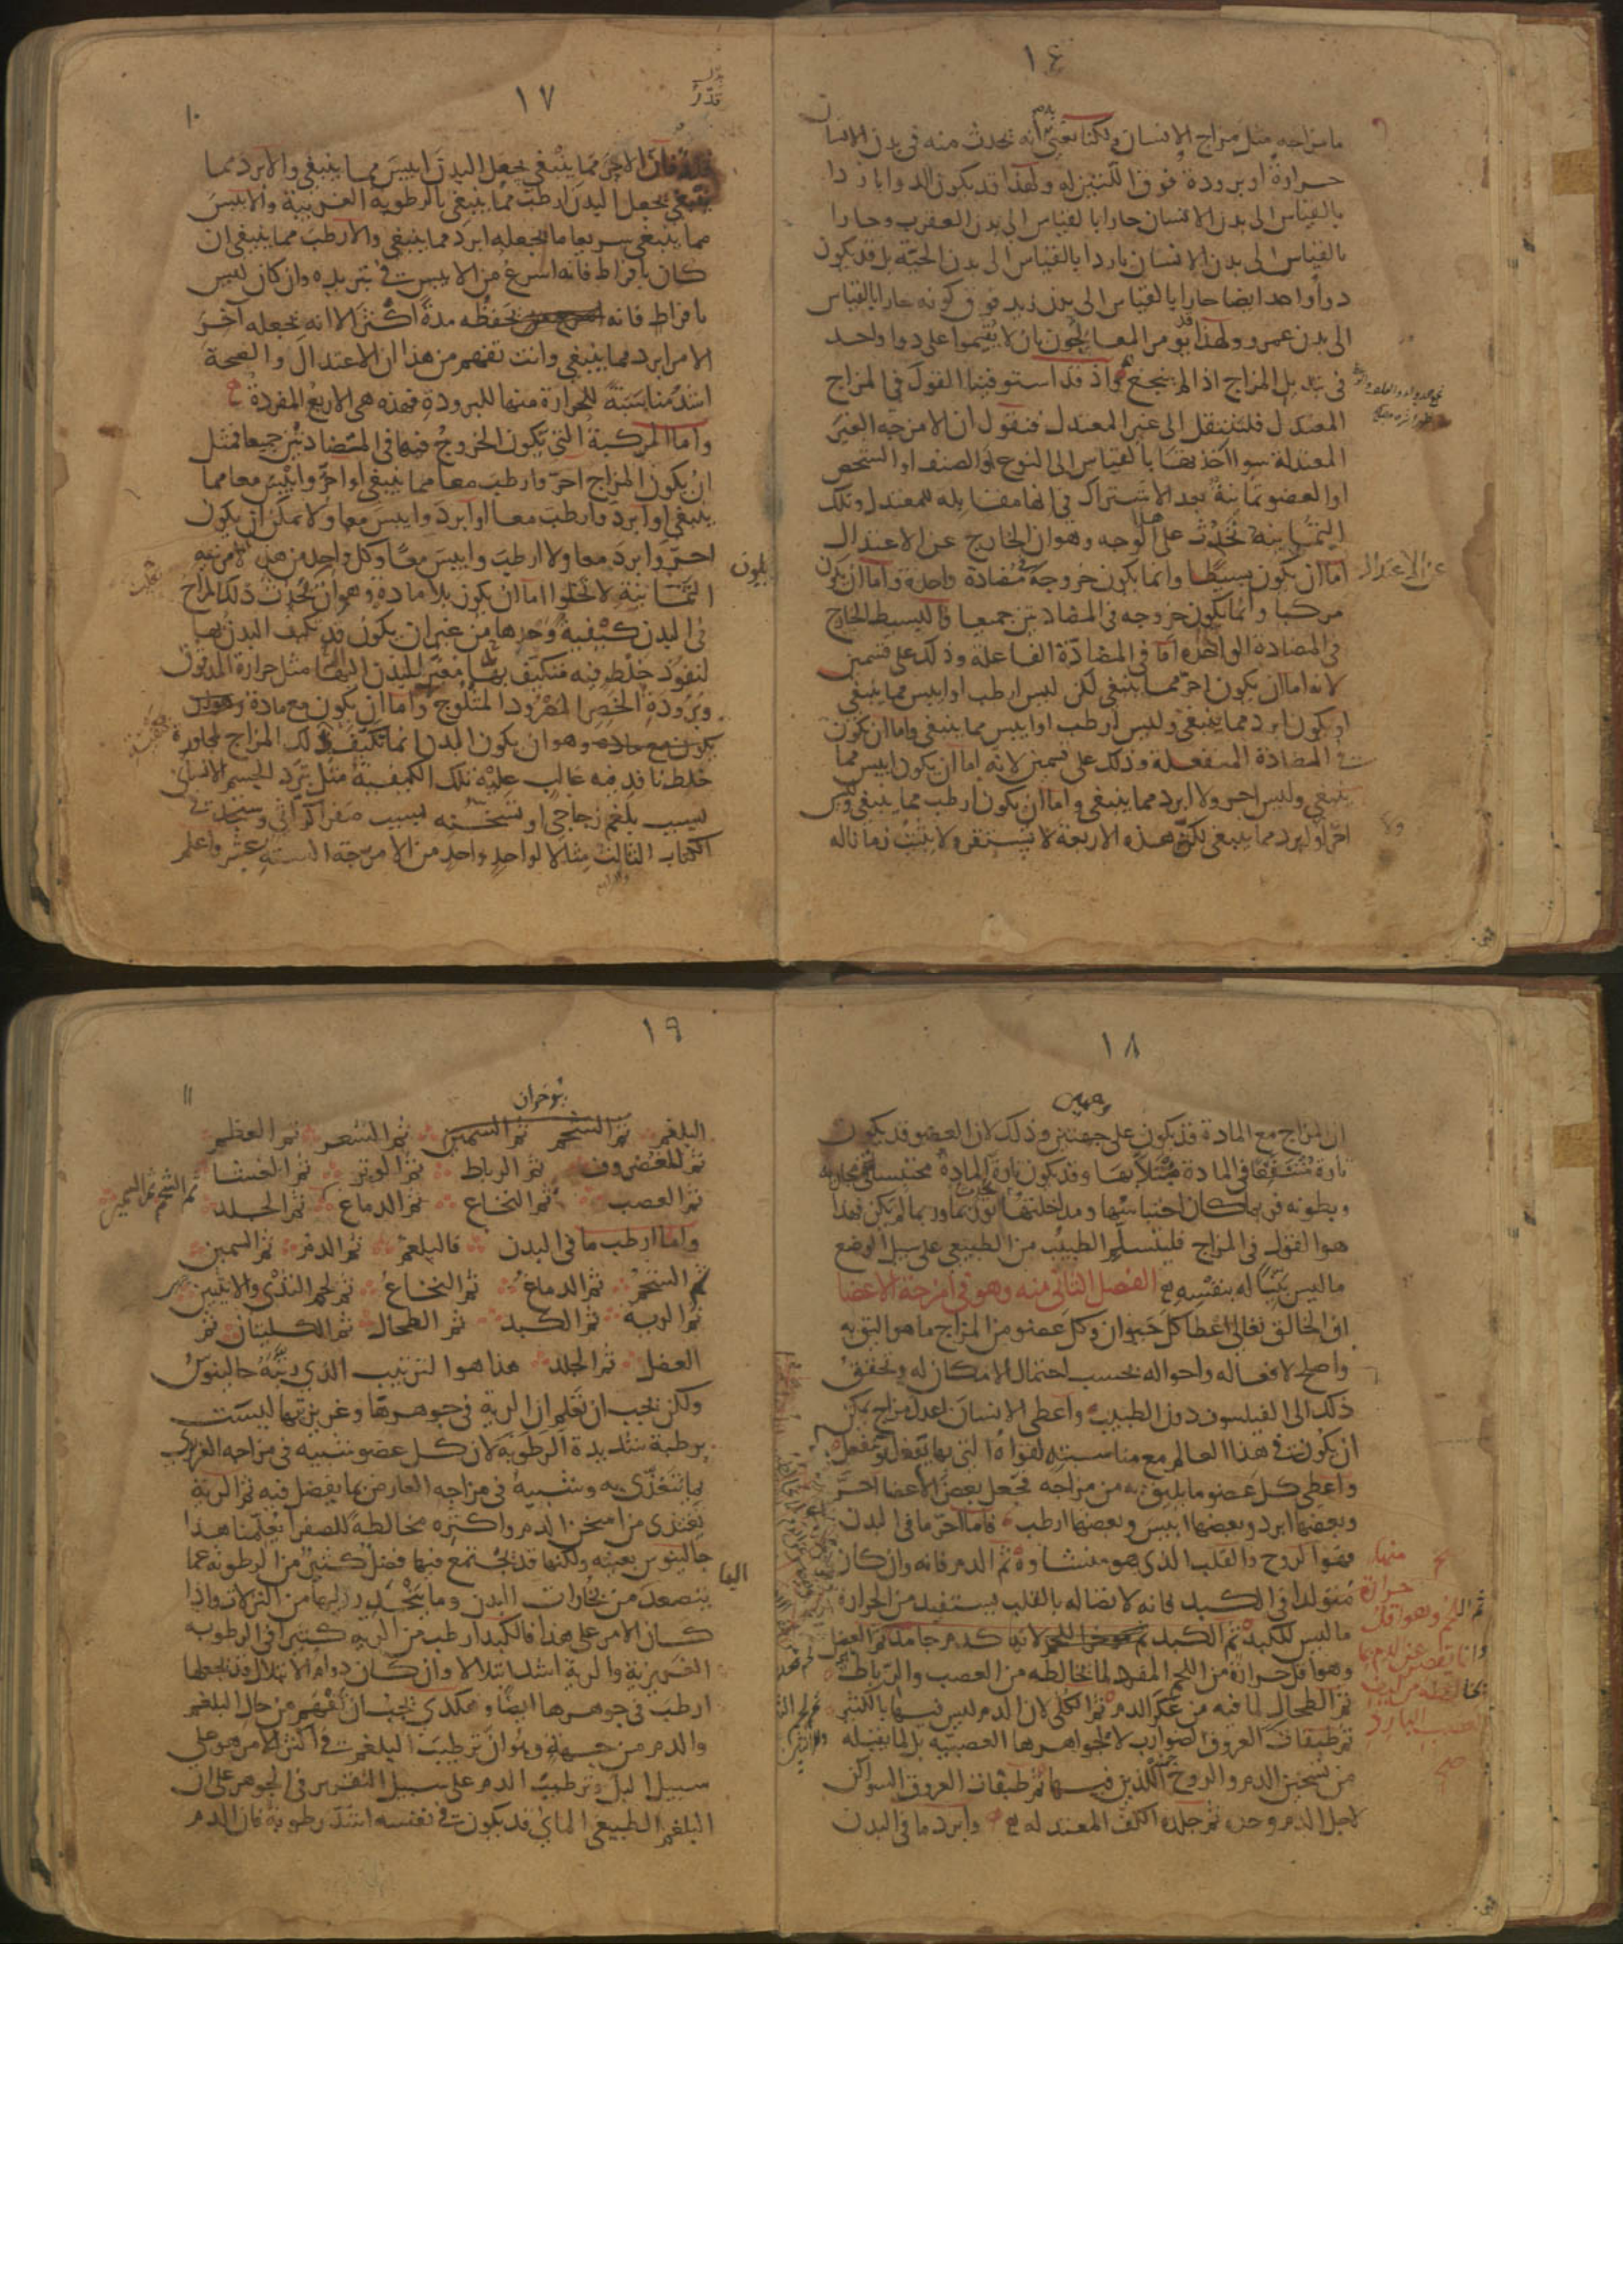 ١٦
ما مزاجه مثل مزاج الانسان ولكنا نعني انه يحدث منه في بدن الانسان
حرارة او برودة فوق اللتين له ولهذا قد يكون الدوا باردا
بالقياس الى بدن الانسان حارا بالقياس الى بدن العقرب وحارا
بالقياس الى بدن الانسان باردا بالقياس الى بدن الحية بل قد يكون
دوا واحد ايضا حارا بالقياس الى بدن زيد فوق كونه حارا بالقياس
الى بدن عمرو ولهذا يؤمر المعالجون بان لا يقيموا على دوا واحد
في تبديل المزاج اذا لم ينجع واذ قد استوفينا القول في المزاج
المعتدل فلننتقل الى غير المعتدل فنقول ان الامزجه الغير
المعتدلة سوا اخذتها بالقياس الى النوع او الصنف او الشخص
او العضو ثمانية بعد الاشتراك في انها مقابلة للمعتدل وتلك
الثمانية تحدث على هذا الوجه وهو ان الخارج عن الاعتدال
عن الاعتدال
اما ان يكون بسيطا وانما يكون خروجه في مضادة واحدة واما ان يكون
مركبا وانما يكون خروجه في المضادتين جميعا فالبسيط الخارج
في المضادة الواحدة اما في المضادة الفاعلة وذلك على قسمين
لانه اما ان يكون احر مما ينبغي لكن ليس ارطب او ايبس مما ينبغي
او يكون ابرد مما ينبغي وليس ارطب او ايبس مما ينبغي واما ان يكون
في المضادة المنفعلة وذلك على قسمين لانه اما ان يكون ايبس مما
ينبغي وليس احر ولا ابرد مما ينبغي واما ان يكون ارطب مما ينبغي وليس
احر او ابرد مما ينبغي لكن هذه الاربعة لا تستقر ولا تثبت زمانا له
١٧
قدر
فان الاحر مما ينبغي يجعل البدن ايبس مما ينبغي والابرد مما
ينبغي يجعل البدن ارطب مما ينبغي بالرطوبة الغريبة والايبس
مما ينبغي سريعا ما يجعله ابرد مما ينبغي والارطب مما ينبغي ان
كان بافراط فانه اسرع من الايبس في تبريده وان كان ليس
بافراط فانه يحفظه مدة اكثر الا انه يجعله آخر
الامر ابرد مما ينبغي وانت تفهم من هذا ان الاعتدال والصحة
اشد مناسبة للحرارة منها للبرودة فهذه هي الاربع المفردة
واما المركبة التي يكون الخروج فيها في المضادتين جميعا فمثل
ان يكون المزاج احر وارطب معا مما ينبغي او احر وايبس معا مما
ينبغي او ابرد وارطب معا او ابرد وايبس معا ولا يمكن ان يكون
احر وابرد معا ولا ارطب وايبس معا وكل واحد من هذه الامزجه
الثمانية لا يخلوا اما ان يكون بلا مادة وهو ان يحدث ذلك المزاج
في البدن كيفية وحدها من غير ان يكون قد تكيف البدن بها
لنفوذ خلط فيه متكيف بها مغير للبدن اليها مثل حرارة المدقوق
وبرودة الخصر المصرود المثلوج واما ان يكون مع مادة
وهو ان يكون البدن انما تكيف بذلك المزاج لمجاورة
خلط نافذ فيه غالب عليه تلك الكيفية مثل تبرد الجسم الانساني
بسبب بلغم زجاجي او تسخنه بسبب صفرا كراثي وستجد في
الكتاب الثالث مثالا لواحد واحد من الامزجة الستة عشر واعلم
١٨
وجهين
ان المزاج مع المادة قد يكون على جهتين وذلك لان العضو قد يكون
تارة منتقعا في المادة مبتلا بها وقد يكون تارة المادة محتبسة في مجاريه
وبطونه فربما كان احتباسها ومداخلتها تورما وربما لم يكن فهذا
هو القول في المزاج فليتسلم الطبيب من الطبيعي على سبيل الوضع
ما ليس بينا له بنفسه الفصل الثاني منه وهو في امزجة الاعضا
ان الخالق تعالى اعطا كل حيوان وكل عضو من المزاج ما هو اليق به
واصلح لافعاله واحواله بحسب احتمال الامكان له وتحقيق
ذلك الى الفيلسوف دون الطبيب واعطى الانسان اعدل مزاج يمكن
ان يكون في هذا العالم مع مناسبته لقواه التي بها يفعل وينفعل
واعطى كل عضو ما يليق به من مزاجه فجعل بعض الاعضا احر
وبعضها ابرد وبعضها ايبس وبعضها ارطب فاما احر ما في البدن
فهو الروح والقلب الذي هو منشاوه ثم الدم فانه وان كان
متولدا في الكبد فانه لاتصاله بالقلب يستفيد من الحرارة
ما ليس للكبد ثم الكبد لانها كدم جامد ثم العضل
وهو اقل حرارة من اللحم المفرد لما يخالطه من العصب والرباط
ثم الطحال لما فيه من عكر الدم ثم الكلى لان الدم ليس فيها بالكثير
ثم طبقات العروق الضوارب لا لجواهرها العصبيه بل لما يقبله
من تسخين الدم والروح اللذين فيها ثم طبقات العروق السواكن
لاجل الدم وحده ثم جلدة الكف المعتدله وابرد ما في البدن
ثم اللحم وهو اقل حرارة منها
١٩
١١
البلغم ثم الشحم ثم السمين ثم الشعر ثم العظم
ثم الغضروف ثم الرباط ثم الوتر ثم الغشا
ثم العصب ثم النخاع ثم الدماغ ثم الجلد
ثم الشحم ثم السمين
واما ارطب ما في البدن فالبلغم ثم الدم ثم السمين
ثم الشحم ثم الدماغ ثم النخاع ثم لحم الثدي والانثيين
ثم الرية ثم الكبد ثم الطحال ثم الكليتان ثم
العضل ثم الجلد هذا هو الترتيب الذي رتبه جالينوس
ولكن يجب ان تعلم ان الرية في جوهرها وغريزتها ليست
برطبة شديدة الرطوبة لان كل عضو شبيه في مزاجه الغريزي
بما يتغذى به وشبيه في مزاجه العارض بما يفضل فيه ثم الرية
تغتذي من اسخن الدم واكثره مخالطة للصفرا يعلمنا هذا
جالينوس بعينه ولكنها قد يجتمع فيها فضل كثير من الرطوبه عما
يتصعد من بخارات البدن وما ينحدر اليها من النزلات واذا
كان الامر على هذا فالكبد ارطب من الريه كثيرا في الرطوبه
الغريزية والرية اشد ابتلالا وان كان دوام الابتلال قد يجعلها
ارطب في جوهرها ايضا وهكذى يجب ان تفهم من حال البلغم
والدم من جهة وهو ان ترطيب البلغم في اكثر الامر هو على
سبيل البل وترطيب الدم على سبيل التقرير في الجوهر على ان
البلغم الطبيعي المائي قد يكون في نفسه اشد رطوبة فان الدم